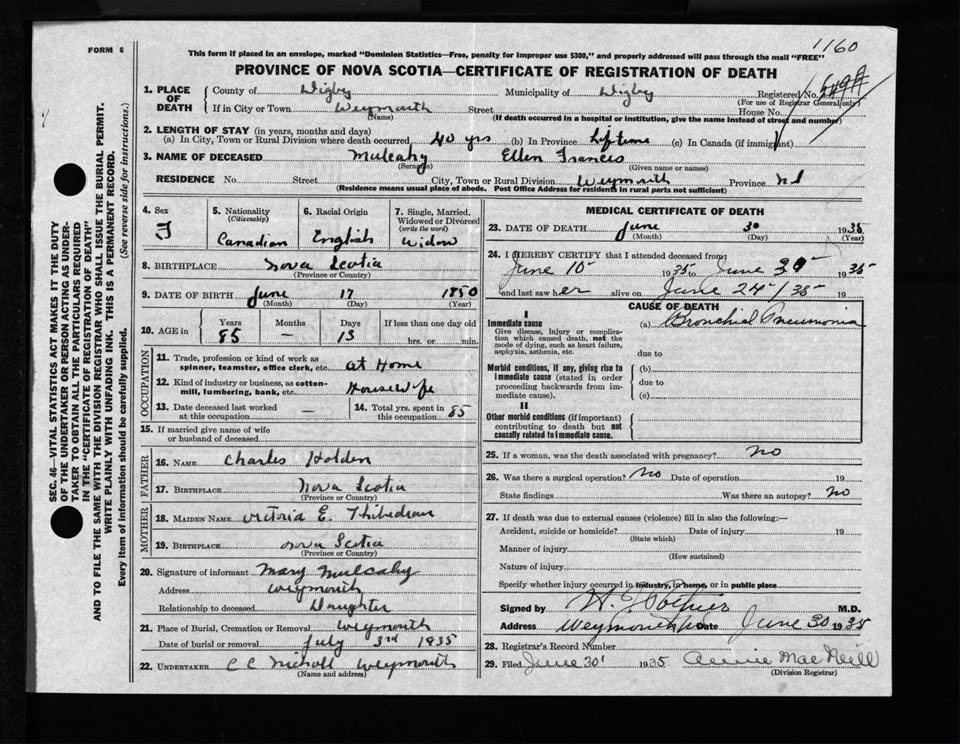 1160
FORM 6
This form if placed in an envelope, marked "Dominion Statistics—Free, penalty for improper use $300," and properly addressed will pass through the mail "FREE"
PROVINCE OF NOVA SCOTIA—CERTIFICATE OF REGISTRATION OF DEATH
1. PLACE OF DEATH County of Digby Municipality of Digby Registered No.
(For use of Registrar General only)
If in City or Town Weymouth Street House No.
(Name) (If death occurred in a hospital or institution, give the name instead of street and number)
2. LENGTH OF STAY (in years, months and days)
(a) In City, Town or Rural Division where death occurred 40 yrs (b) In Province Lifetime (c) In Canada (if immigrant)
3. NAME OF DECEASED Mulcahy Ellen Francis
(Surname) (Given name or names)
RESIDENCE No. Street City, Town or Rural Division Weymouth Province NS
(Residence means usual place of abode. Post Office Address for residents in rural parts not sufficient)
SEC. 46—VITAL STATISTICS ACT MAKES IT THE DUTY
OF THE UNDERTAKER OR PERSON ACTING AS UNDER-
TAKER TO OBTAIN ALL THE PARTICULARS REQUIRED
IN THE "CERTIFICATE OF REGISTRATION OF DEATH"
AND TO FILE THE SAME WITH THE DIVISION REGISTRAR WHO SHALL ISSUE THE BURIAL PERMIT.
WRITE PLAINLY WITH UNFADING INK. THIS IS A PERMANENT RECORD.
Every item of information should be carefully supplied. (See reverse side for instructions.)
4. Sex F
5. Nationality (Citizenship) Canadian
6. Racial Origin English
7. Single, Married, Widowed or Divorced (write the word) Widow
8. BIRTHPLACE Nova Scotia
(Province or Country)
9. DATE OF BIRTH June 17 1850
(Month) (Day) (Year)
10. AGE in Years Months Days If less than one day old
85 — 13 hrs. or min.
OCCUPATION
11. Trade, profession or kind of work as spinner, teamster, office clerk, etc. at Home
12. Kind of industry or business, as cotton-mill, lumbering, bank, etc. Housewife
13. Date deceased last worked at this occupation —
14. Total yrs. spent in this occupation 85
15. If married give name of wife or husband of deceased
FATHER
16. NAME Charles Holden
17. BIRTHPLACE Nova Scotia
(Province or Country)
MOTHER
18. MAIDEN NAME Victoria E. Thibedeau
19. BIRTHPLACE Nova Scotia
(Province or Country)
20. Signature of informant Mary Mulcahy
Address Weymouth
Relationship to deceased Daughter
21. Place of Burial, Cremation or Removal Weymouth
Date of burial or removal July 3rd 1935
22. UNDERTAKER C C Nicholl Weymouth
(Name and address)
MEDICAL CERTIFICATE OF DEATH
23. DATE OF DEATH June 30 1935
(Month) (Day) (Year)
24. I HEREBY CERTIFY that I attended deceased from
June 10 1935 to June 30 1935
and last saw her alive on June 24 1935 19
CAUSE OF DEATH
I
Immediate cause (a) Bronchial Pneumonia
Give disease, injury or complication which caused death, not the mode of dying, such as heart failure, asphyxia, asthenia, etc.
due to
Morbid conditions, if any, giving rise to immediate cause (stated in order proceeding backwards from immediate cause).
(b)
due to
(c)
II
Other morbid conditions (if important) contributing to death but not causally related to immediate cause.
25. If a woman, was the death associated with pregnancy? No
26. Was there a surgical operation? No Date of operation 19
State findings Was there an autopsy? No
27. If death was due to external causes (violence) fill in also the following:—
Accident, suicide or homicide? Date of injury 19
(State which)
Manner of injury
(How sustained)
Nature of injury
Specify whether injury occurred in industry, in home, or in public place
Signed by M.D.
Address Weymouth Date June 30 1935
28. Registrar's Record Number
29. Filed June 30 1935 Annie MacNeill
(Division Registrar)